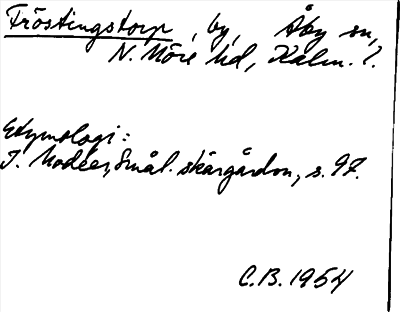 Tröstingstorp, by, Åby sn,
N. Möre hd, Kalm. l.
Etymologi:
I. Modéer, Smål. skärgårdsn, s. 97.
C.B. 1954